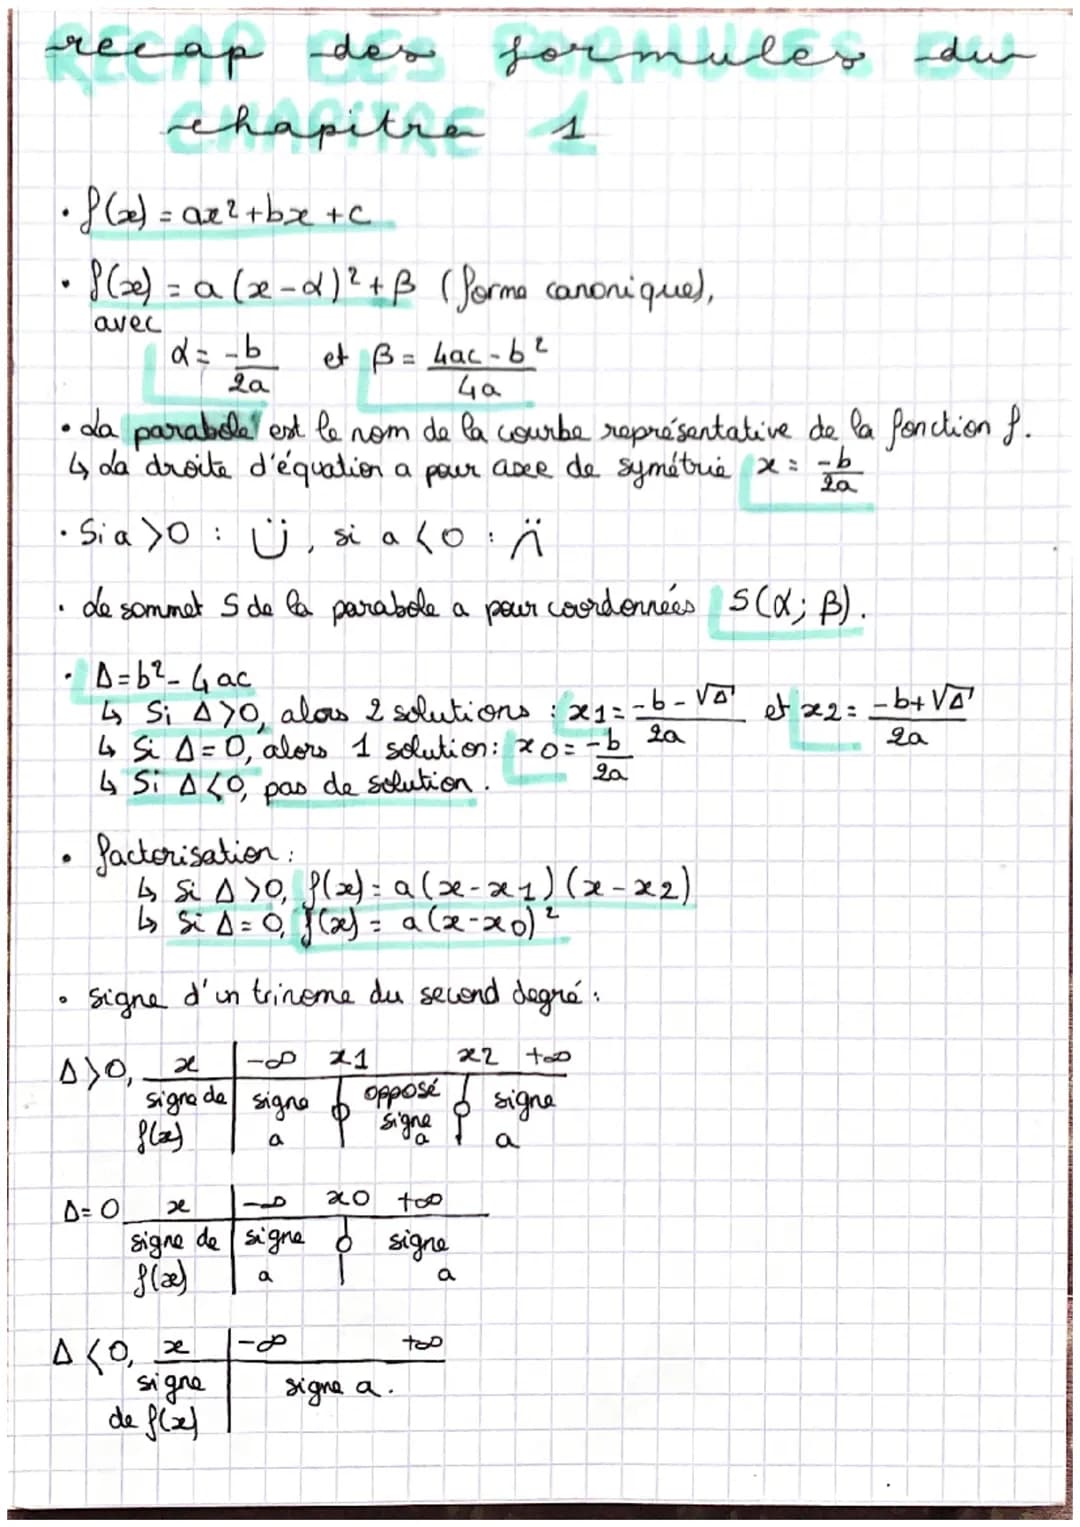 recap des formules du
RECAP DES FORMULES DU
chapitre 1
CHAPITRE 1
• f(x) = ax²+bx+c
• f(x) = a(x-α)²+β (forme canonique),
avec
α = -b/2a et β = 4ac-b²/4a
• La parabole est le nom de la courbe représentative de la fonction f.
↳ La droite d'équation a pour axe de symétrie x = -b/2a
• Si a>0 : ü, si a<0 : n̈
• Le sommet S de la parabole a pour coordonnées S(α; β).
• Δ=b²-4ac
↳ Si Δ>0, alors 2 solutions : x1 = -b-√Δ/2a et x2 = -b+√Δ/2a
↳ Si Δ=0, alors 1 solution : x0 = -b/2a
↳ Si Δ<0, pas de solution.
• factorisation :
↳ Si Δ>0, f(x) = a(x-x1)(x-x2)
↳ Si Δ=0, f(x) = a(x-x0)²
• signe d'un trinome du second degré :
Δ>0, x -∞ x1 x2 +∞
signe de signe opposé signe
f(x) a signe a a
Δ=0 x -∞ x0 +∞
signe de signe 0 signe
f(x) a a
Δ<0, x -∞ +∞
signe signe a.
de f(x)